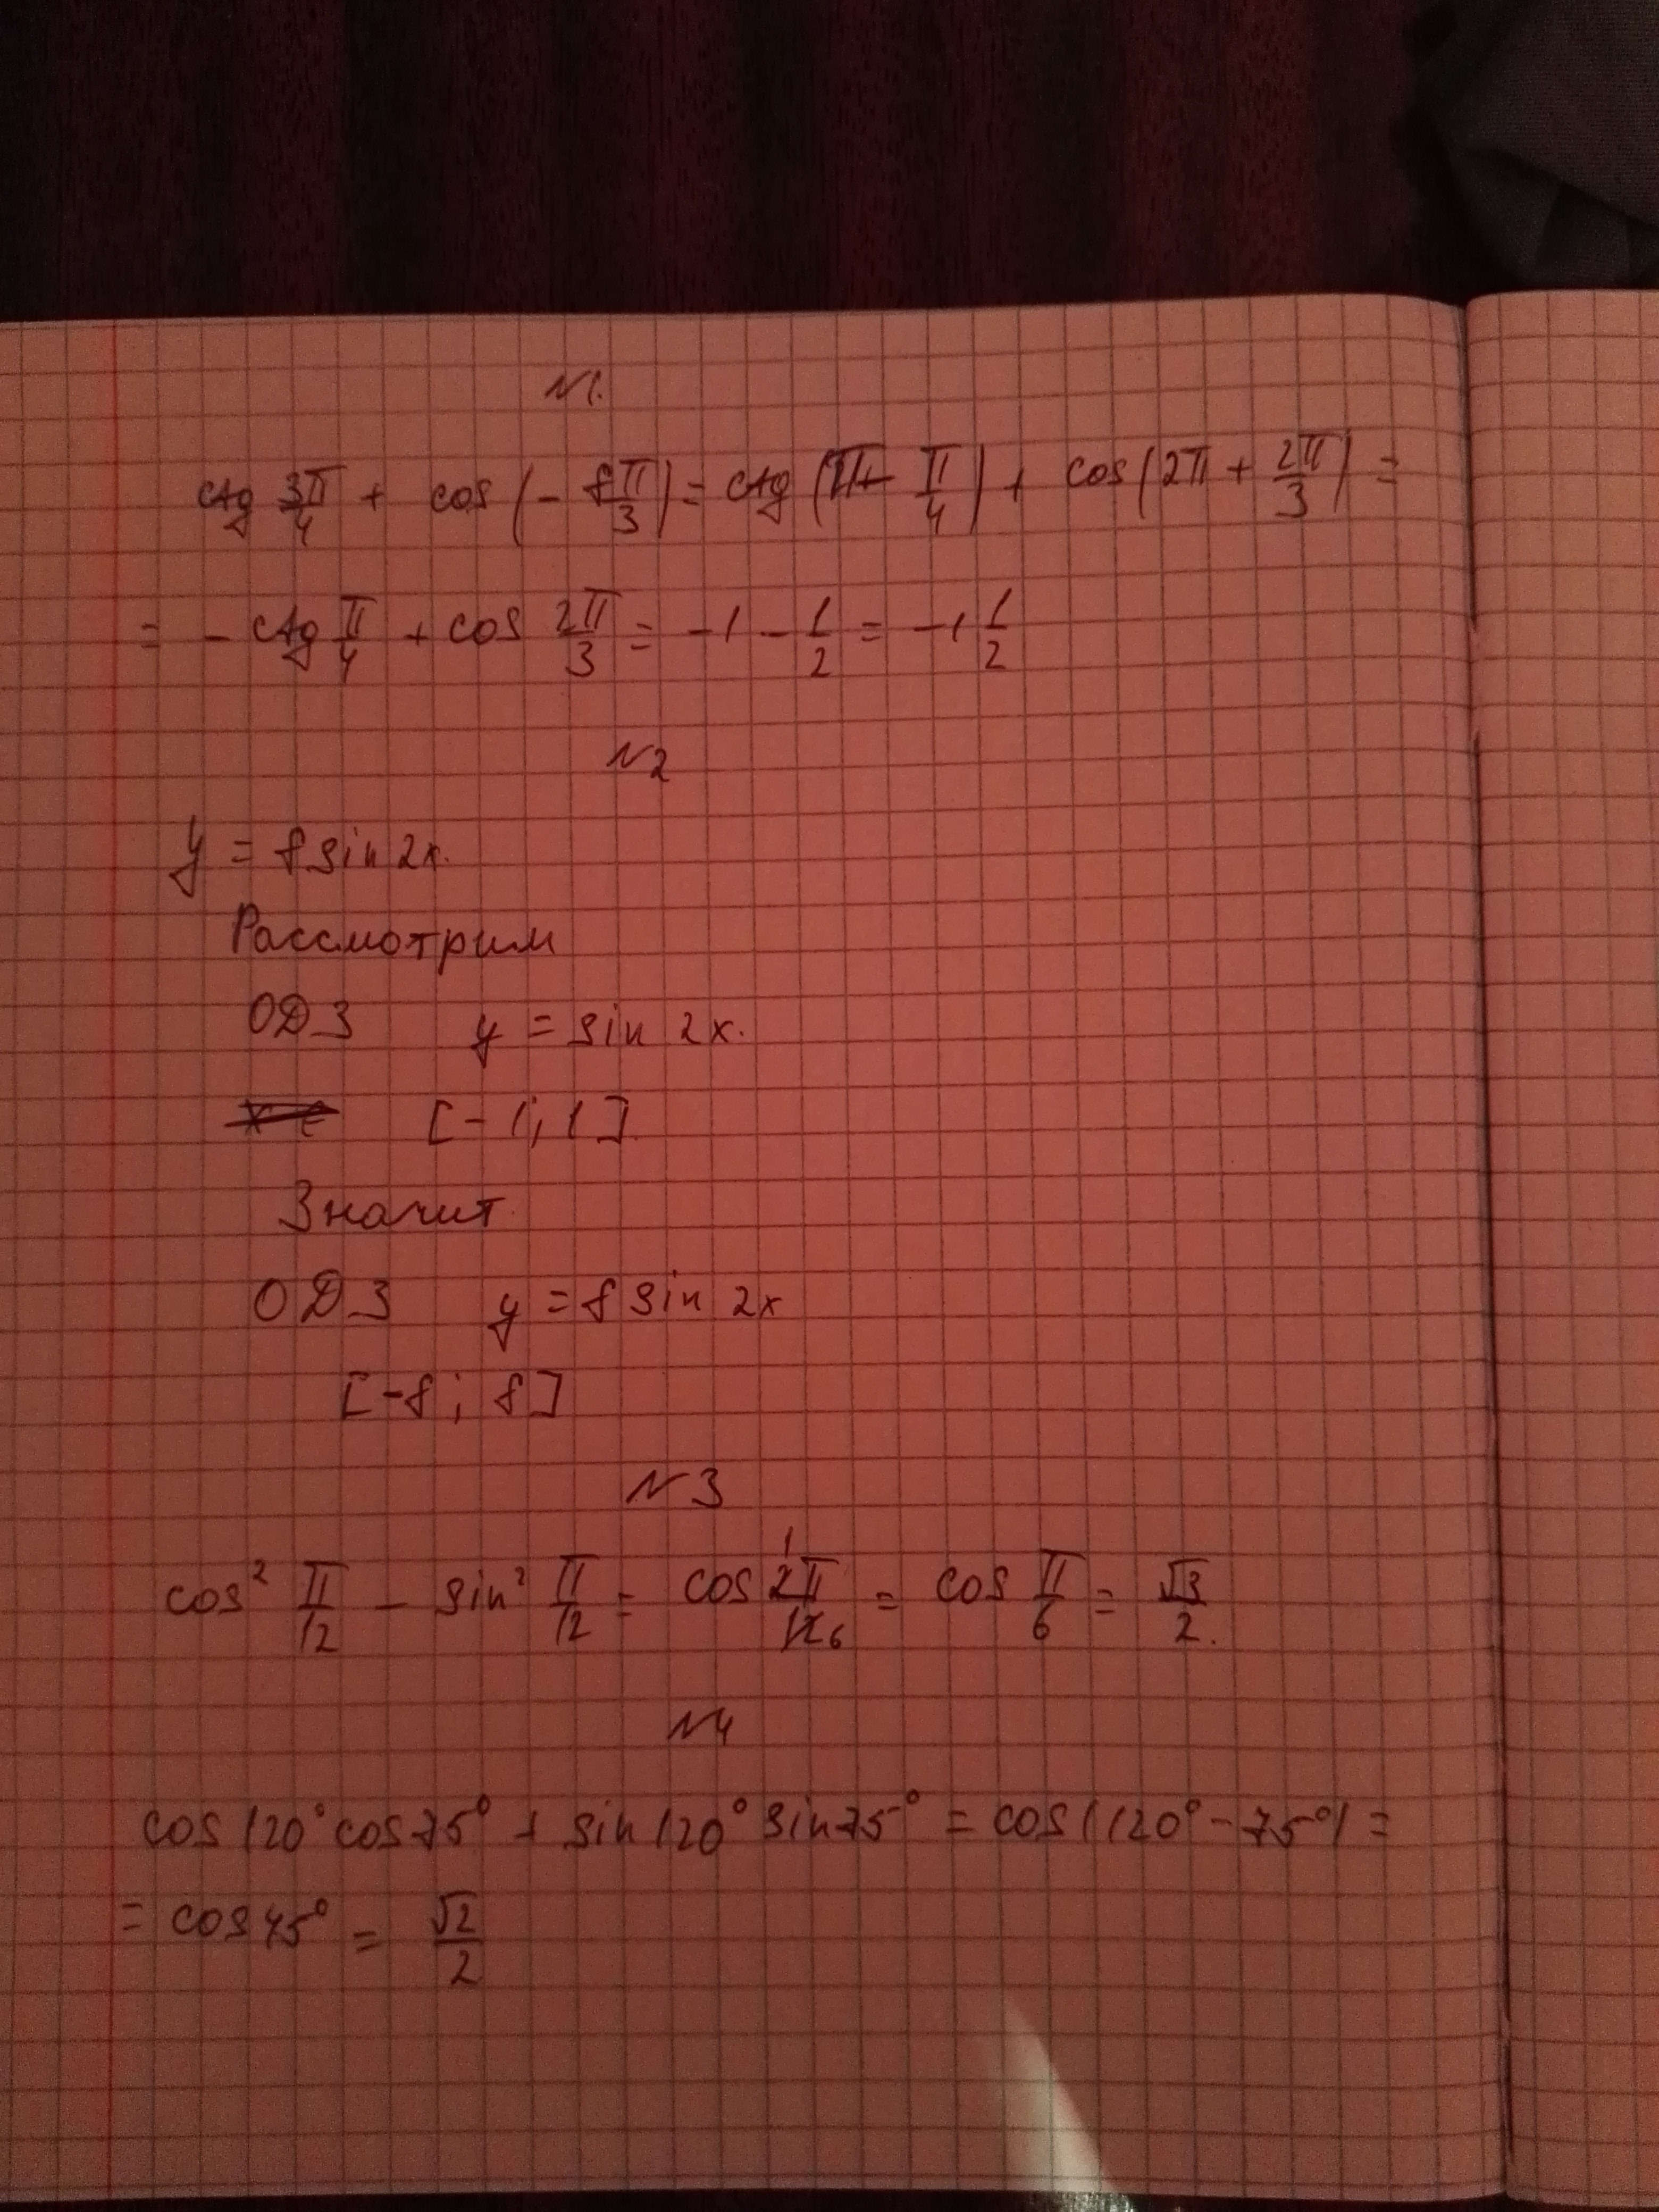 N1.
ctg 3π/4 + cos(-8π/3) = ctg(π - π/4) + cos(2π + 2π/3) =
= - ctg π/4 + cos 2π/3 = -1 - 1/2 = -1 1/2
N2
y = 8 sin 2x.
Рассмотрим
ОДЗ y = sin 2x.
[-1; 1]
Значит
ОДЗ y = 8 sin 2x
[-8; 8]
N3
cos² π/12 - sin² π/12 = cos 2π/12 = cos π/6 = √3/2.
N4
cos 120° cos 75° + sin 120° sin 75° = cos(120° - 75°) =
= cos 45° = √2/2